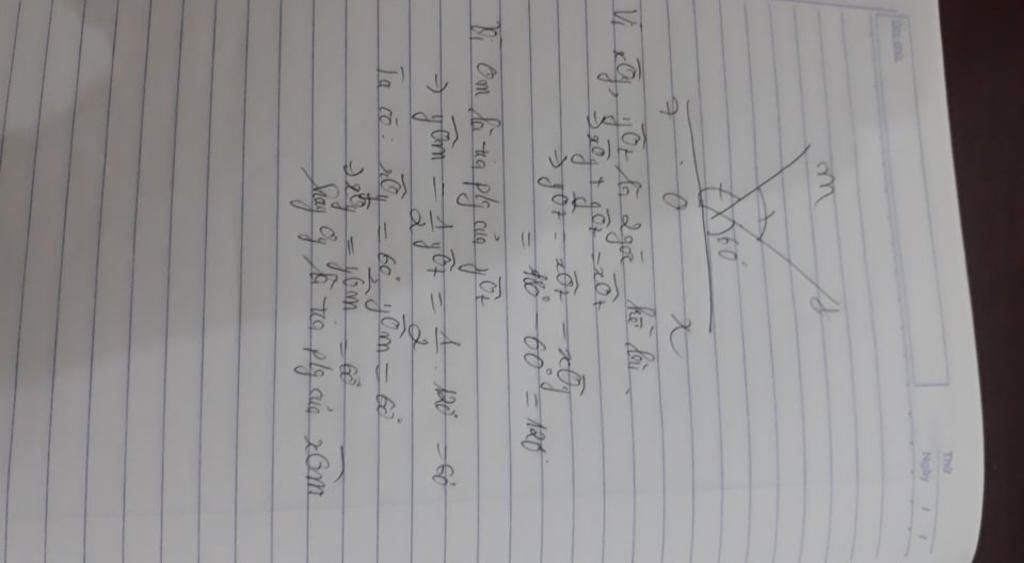 Thứ
Ngày / /
m
y
60°
O
x
Vì xOy, yOt là 2 góc kề bù
⇒ xOy + yOt = xOt
⇒ yOt = xOt - xOy
= 180° - 60° = 120°
Vì Om là tia p/g của yOt
⇒ yOm = 1/2 yOt = 1/2 . 120° = 60°
Ta có: xOy = 60°, yOm = 60°
⇒ xOy = yOm = 60°
Hay Oy là tia p/g của xOm